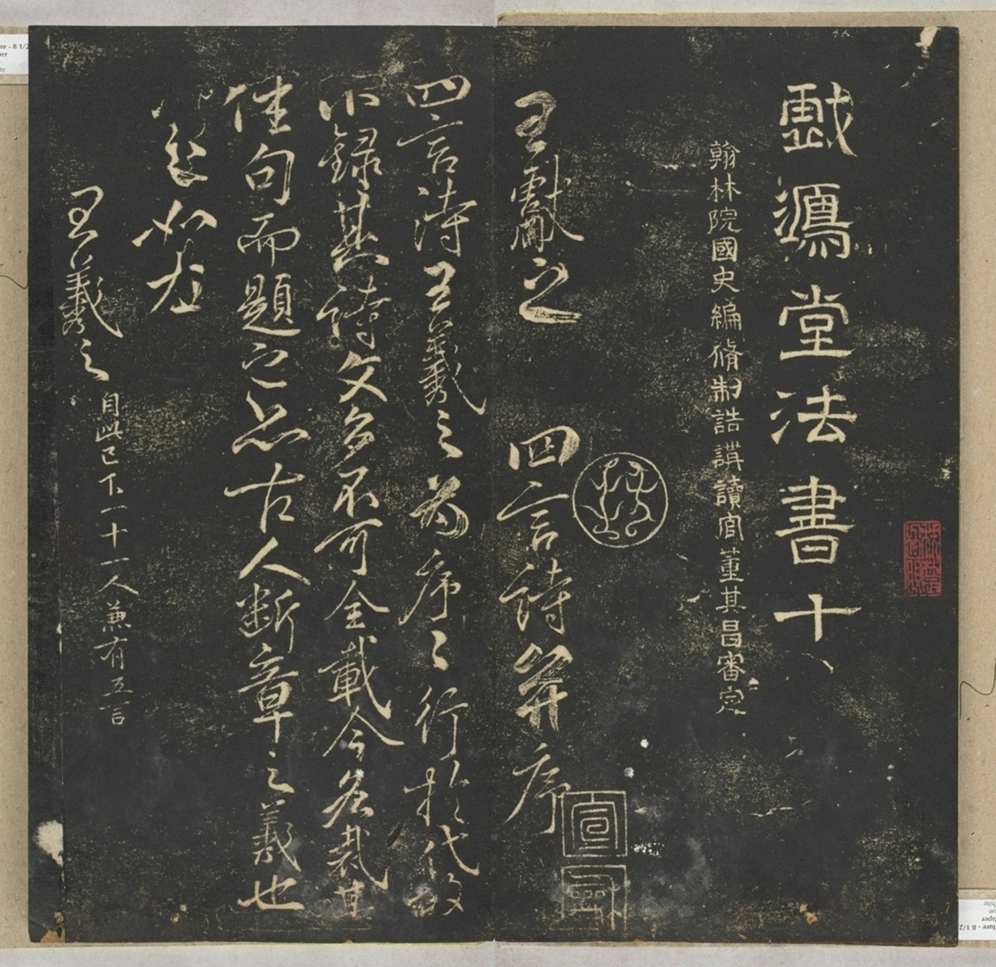 戲鴻堂法書十
翰林院國史編脩制誥講讀官董其昌審定
王獻之 四言詩并序
四言詩王羲之為序〻行於代故
不錄其詩文多不可全載今各裁其
佳句而題之亦古人斷章之義也
如左
王羲之 自此已下一十一人兼有五言